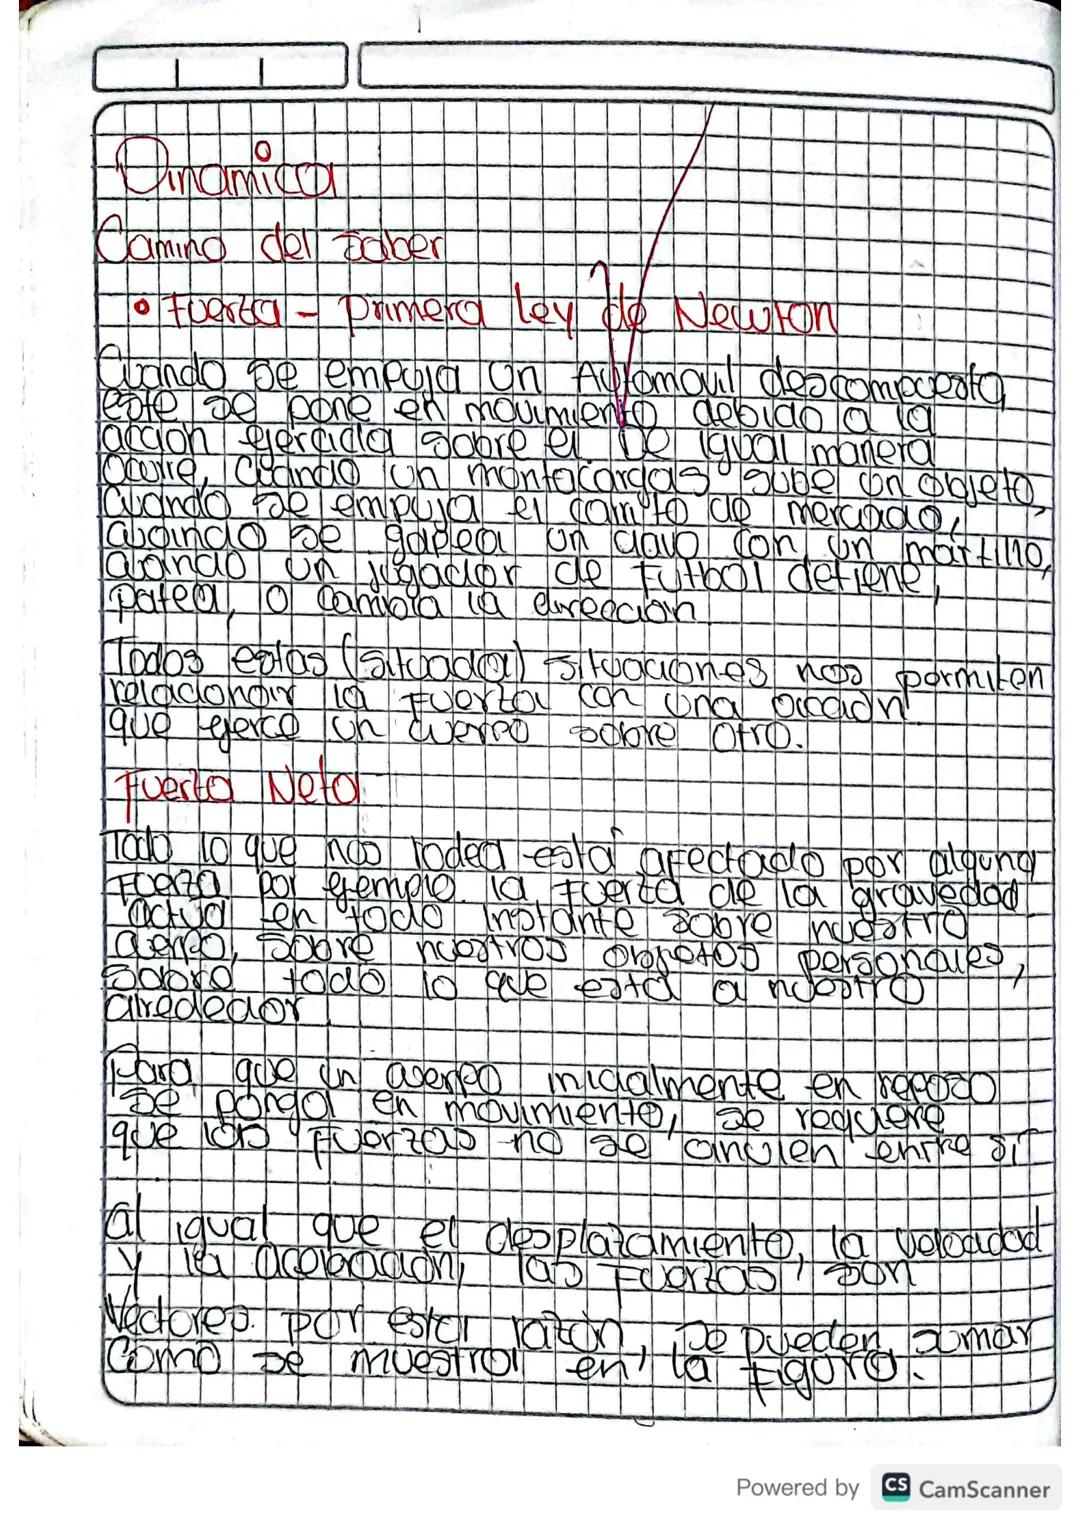 Dinamica
Camino del saber
• Fuerza - Primera ley de Newton
Cuando se empuja un Automovil descompuesto,
este se pone en movimiento debido a la
accion ejercida sobre el De igual manera
ocurre, Cuando un montacargas sube un objeto,
Cuando se empuja el carrito de mercado,
cuando se golpea un clavo con un martillo,
cuando un jugador de futbol detiene,
patea, o cambia la dirección
Todos estas (situada) situaciones nos permiten
relacionar la Fuerza con una acción
que ejerce un cuerpo sobre otro.
Fuerza Neta
Todo lo que nos rodea está afectado por alguna
Fuerza por ejemplo la fuerza de la gravedad
actua en todo instante sobre nuestro
cuerpo, sobre nuestros objetos personales,
sobre todo lo que esta a nuestro
alrededor
Para que un cuerpo inicialmente en repozo
se ponga en movimiento, se requiere
que las fuerzas no se anulen entre sí
al igual que el desplazamiento, la velocidad
y la aceleración, las Fuerzas son
Vectores. por esta razón, se pueden sumar
Como se muestra en la Figura.
Powered by CS CamScanner